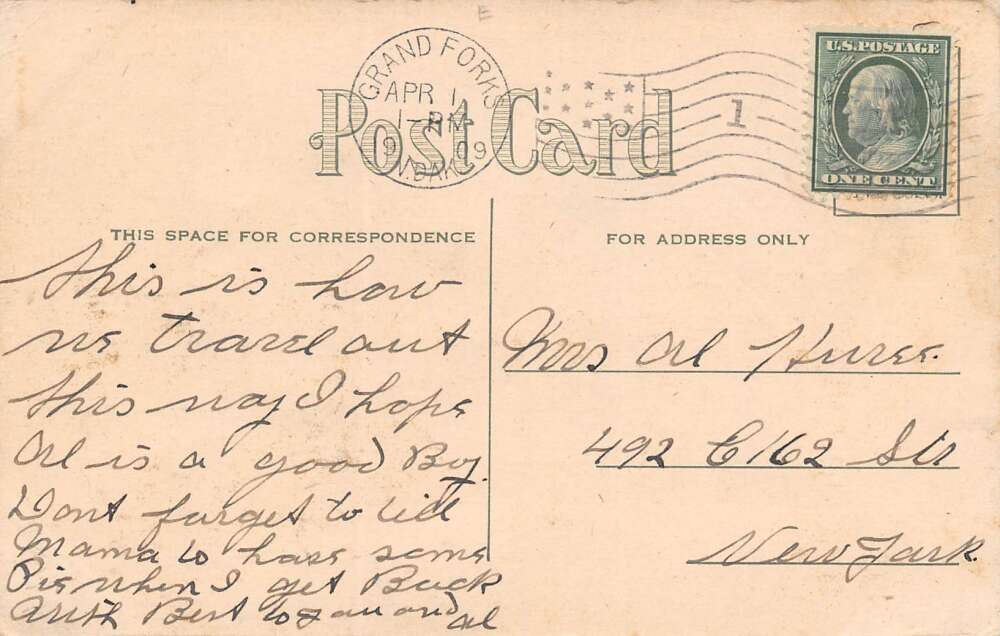 GRAND FORKS
APR 1
1-PM
1909
N.DAK.
1
U.S. POSTAGE
ONE CENT
Post Card
THIS SPACE FOR CORRESPONDENCE
This is how
we travel out
this way I hope
Al is a good Boy.
Dont farget to tell
Mama to have some
Pie when I get Back
With Best to you and Al
FOR ADDRESS ONLY
Mrs Al
492 E 162 Str
New York